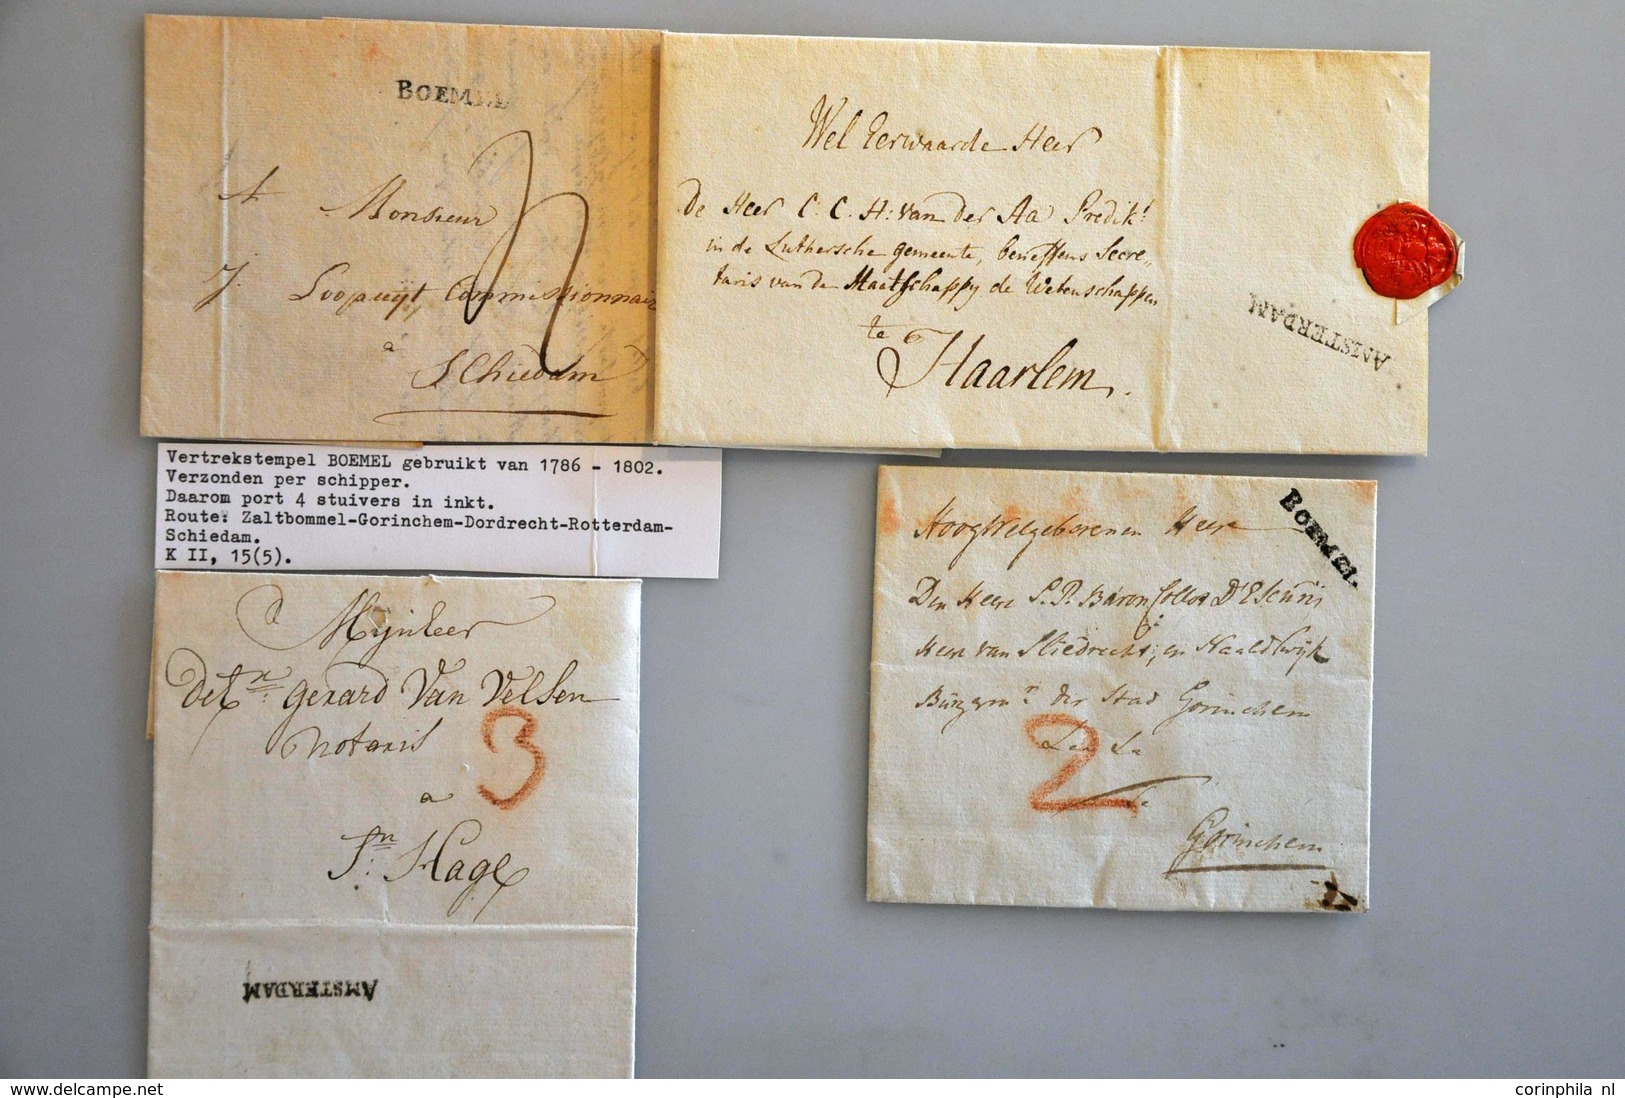 BOEMEL
A Monsieur
J. Loopuijt, Commissionnair
a
Schiedam
4
Wel Eerwaarde Heer
De Heer C. C. H: van der Aa Predikt
in de Luthersche gemeente, beneffens Secre„
taris van de Maatschappy de Wetenschappen
te
Haarlem.
AMSTERDAM
Vertrekstempel BOEMEL gebruikt van 1786 - 1802.
Verzonden per schipper.
Daarom port 4 stuivers in inkt.
Route: Zaltbommel-Gorinchem-Dordrecht-Rotterdam-
Schiedam.
K II, 15(5).
Mijnheer
Gerard Van Velsen
Notaris
3
a
Hage
AMSTERDAM
BOEMEL.
HoogWelgeborenen Heere
Den Heere Baron Collot D'Escuri
Heere van Sliedrecht, en
der Stad Gorinchem
2
Gorinchem
corinphila nl